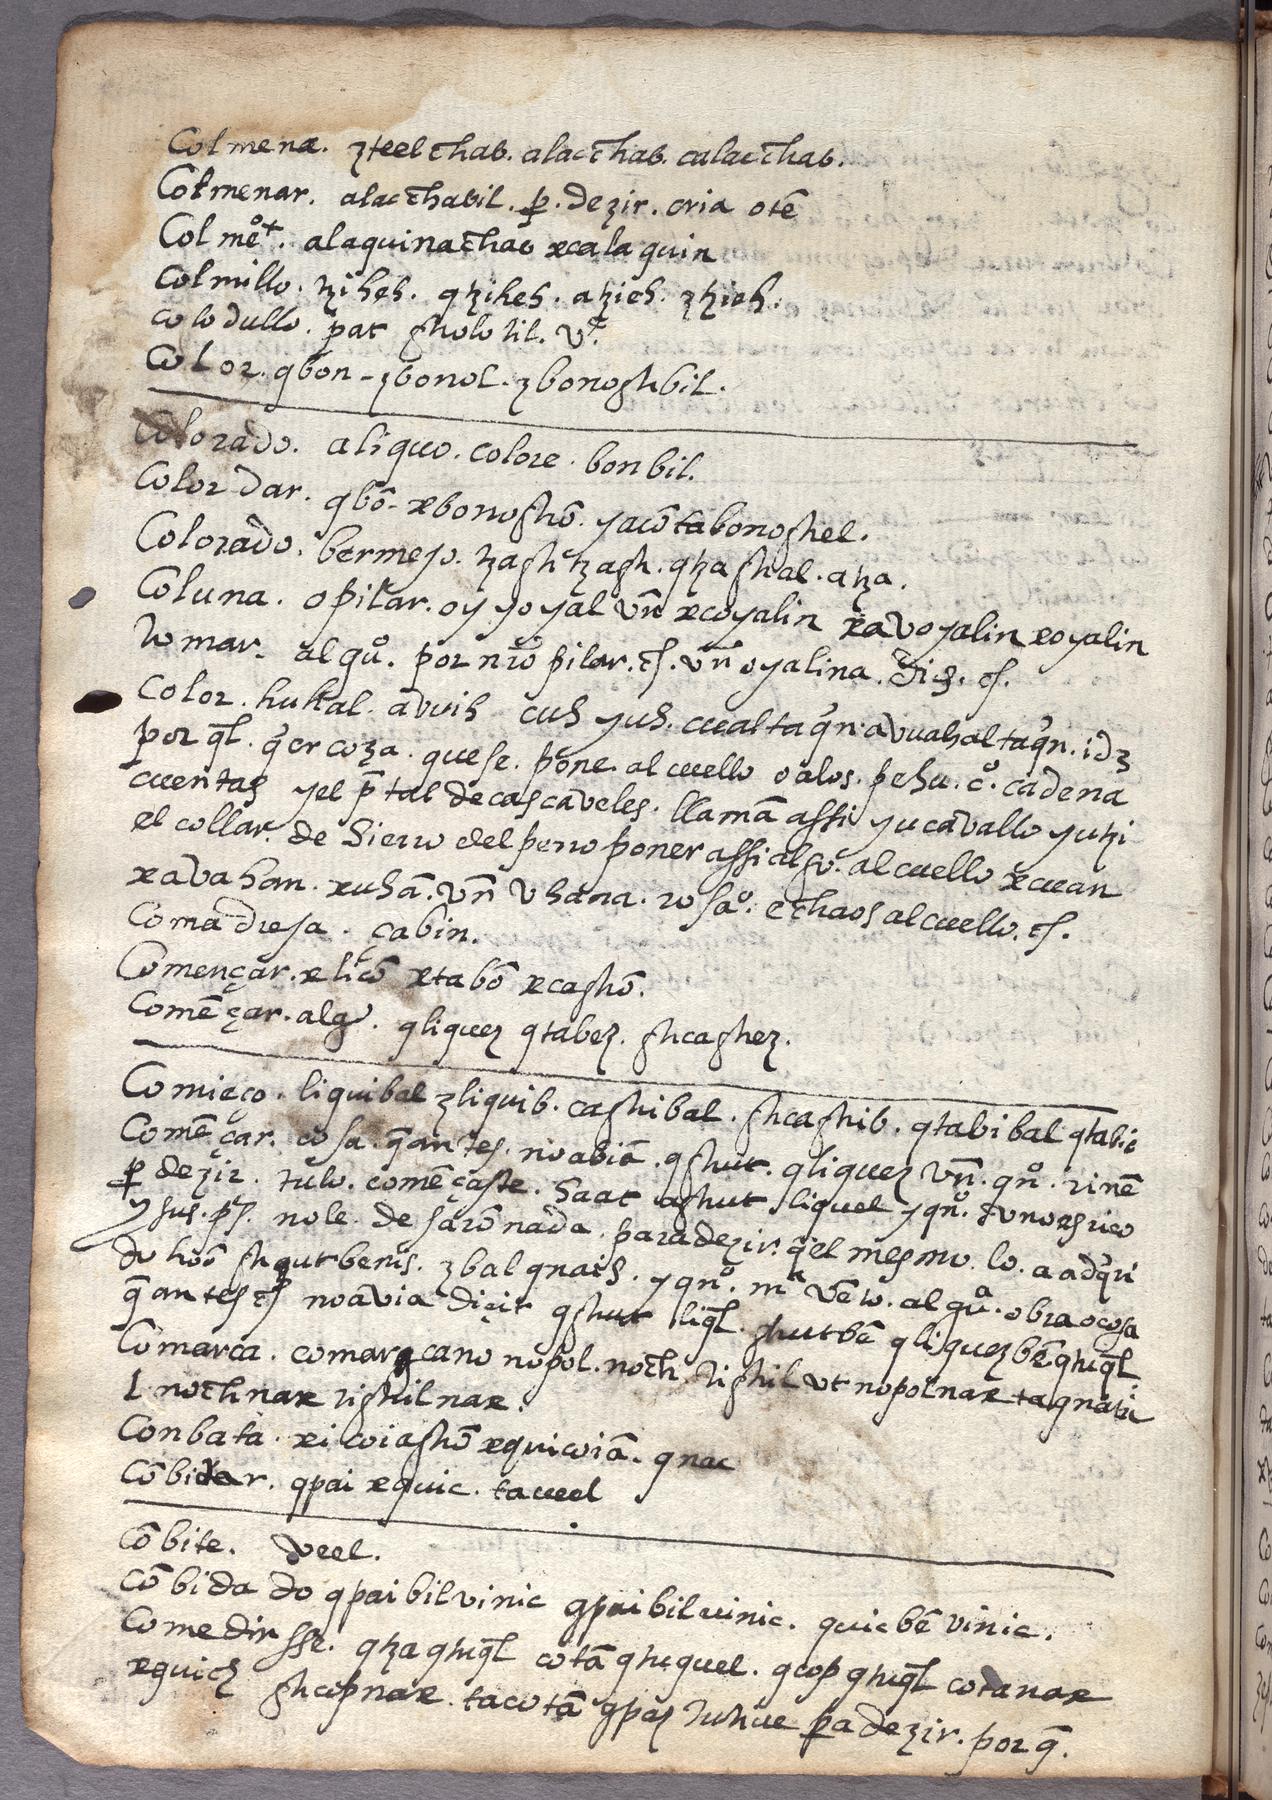 Colmena. zteel chab. alac chab. calac chab.
Colmenar. alac chabil. p. dezir. cria otē
Colmeº+. alaquinachab xcalaquin
Colmillo. tziheh. qtziheh. atzieh. ztzieh.
Colodullo. pat gholo lil. vᵗ.
Color. qbon - zbonol. zbonoghbil.
Colorado. aliquo. colore. bonbil.
Color dar. qbō - xbonoghō. yacō tabonoghel.
Colorado. bermejo. tzagh tzagh. qtzaghal. atza.
Coluna. o pilar. oy yoyal vn̄ xcoyalin xavoyalin xoyalin
tomar. al guº. por nrō pilar. et. vn̄ oyalina. Dioz. et.
Color. hukal. avuih cuh yuh. cuealtaq̄n. avuahaltaq̄n. idz
por ql̄. q̄er coza. que se. pone. al cuello o alos. pehu. cº. cadena
cuentas yel p̄tal de cascaveles. llamā assi yucavallo yutzi
el collar. de Sierro del perro poner assi algº. al cuello xcuan
xavahan. xuhā. vn̄ vhana. rosaº. echaos al cuello. et.
Comadreja. çabin.
Començar. x licō xtabō xcaghō.
Comēçar. algº. qliquez qtabez. ghcaghez.
Comieço. liquibal zliquib. caghibal. ghcaghib. qtabibal qtabib
Comēçar. cosa. q̄ antes. no abiā. qghut. qliquez vn̄. qnº. rinē
p dezir. tulo. comēçaste. Saat aghut liquel yqnº.
ysus. pº. nole. de sarō nada. para dezir. q̄ el mesmo. lo. a adq̄ri
do hoō ghqut benis. zbal qnaih. yqnº. mª vēto. al guª. obra o cosa
q̄ antes et no avia diçit qghut liql̄. ghut bē qliquez bē qhiql̄
Comarca. comarqcano nopol. noch. tighil vt nopolnax taqnatic
l nochnax tighilnax.
Conbata. xi coiaghō xquicoiā. qnac
Cōbidar. qpai xquic. taveel
Cōbite. veel.
Cōbidado qpaibilvinic qpaibilvinic. quicbē vinic.
Comedirsse. qtzaqhiql̄ cotā qhiquel. qcop qhiql̄ cotanax
xquich ghcopnax. tacotā qpas tuhue pa dezir. por q̄.